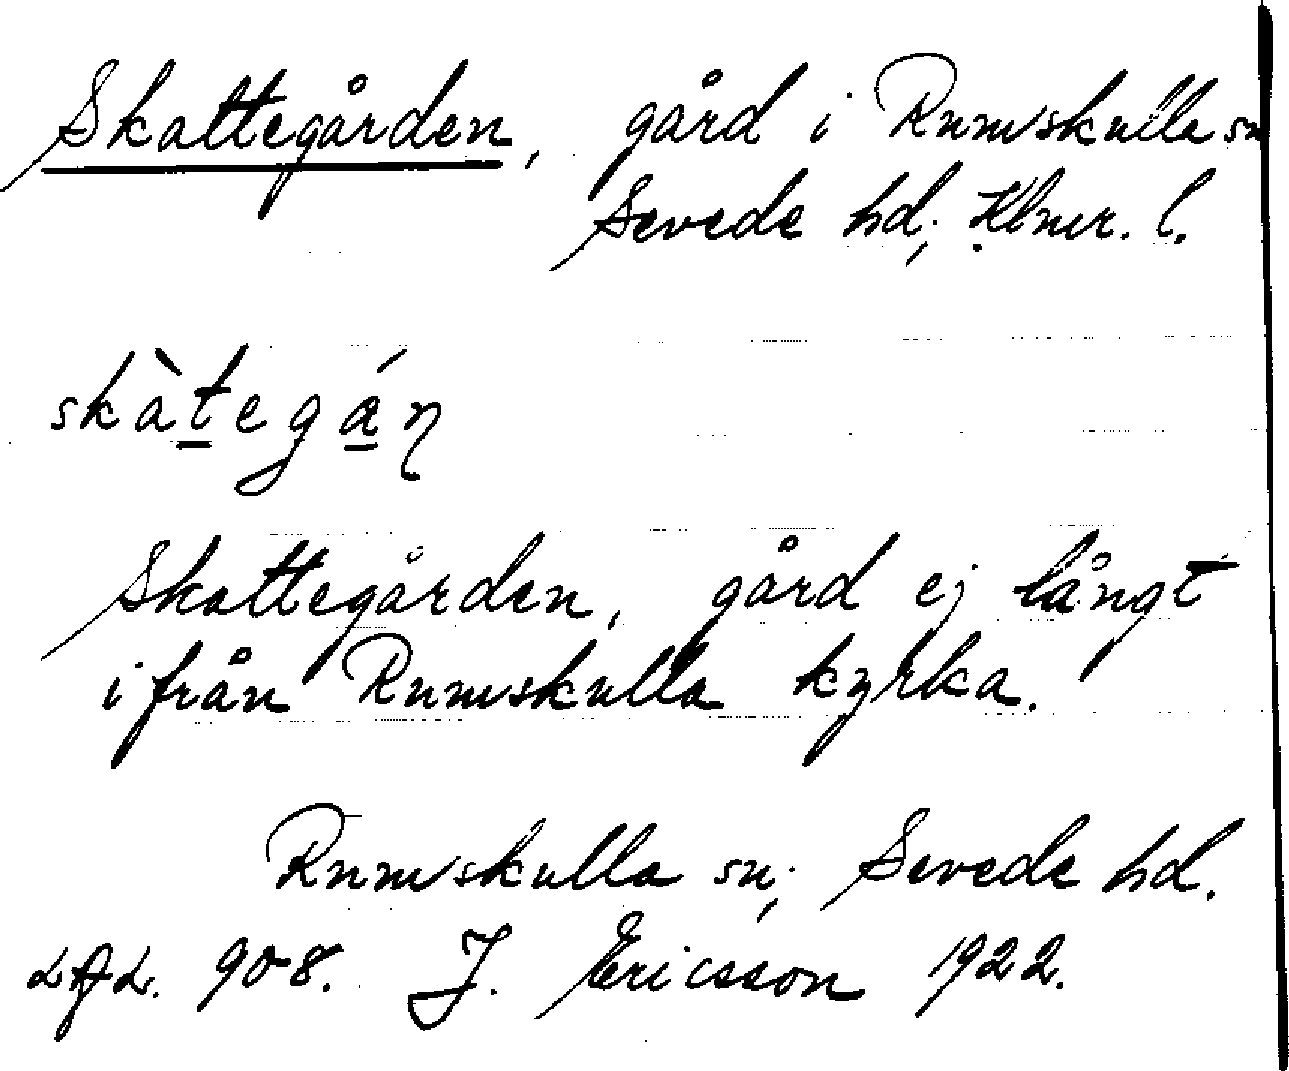 Skattegården, gård i Rumskulla sn
Sevede hd; Klmr. l.
skàtegán
Skattegården, gård ej långt
ifrån Rumskulla kyrka.
Rumskulla sn; Sevede hd.
908. J. Ericsson 1922.